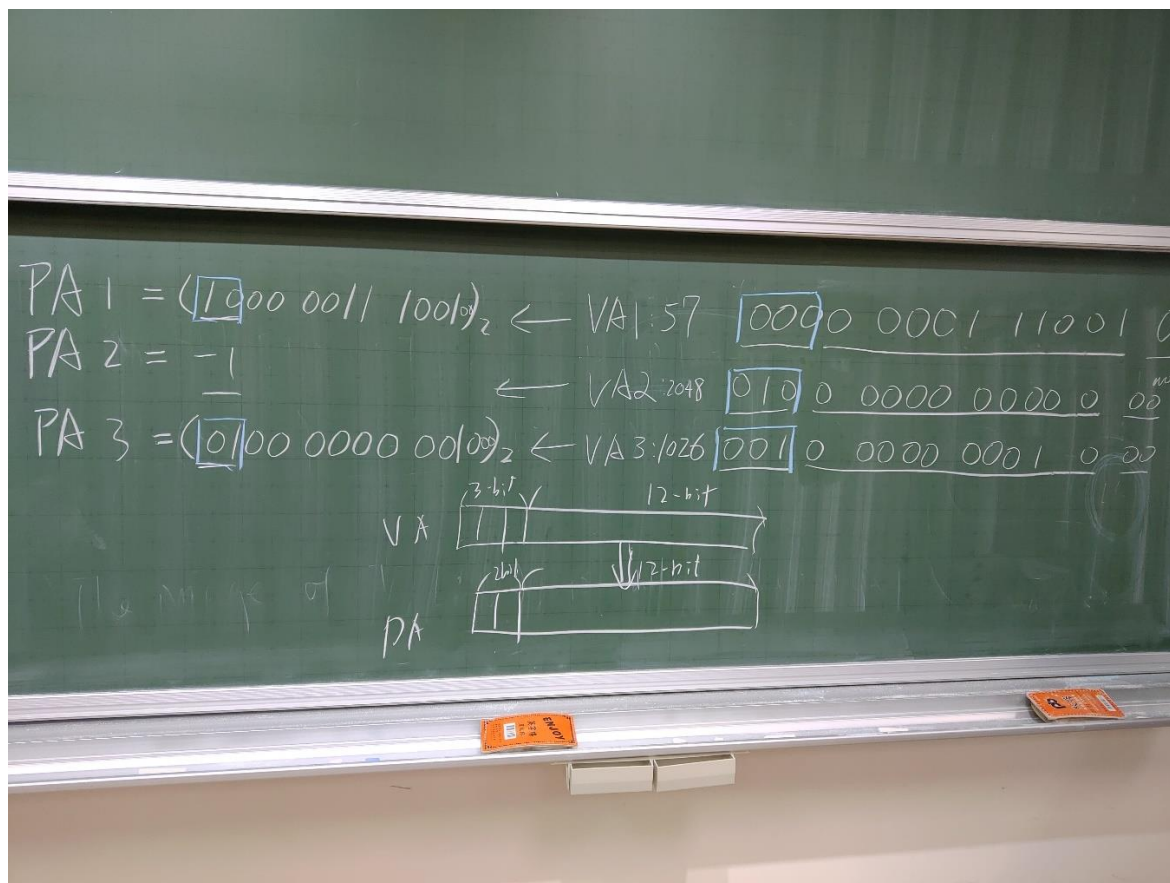 PA 1 = (1000 0011 100100)₂ ← VA1:57 0000 0001 11001
PA 2 = -1 ← VA2:2048 010 0 0000 0000 0 00
PA 3 = (0100 0000 001000)₂ ← VA3:1026 001 0 0000 0001 0 00
3-bit 12-bit
VA
2bit 12-bit
PA
The range of
ENJOY